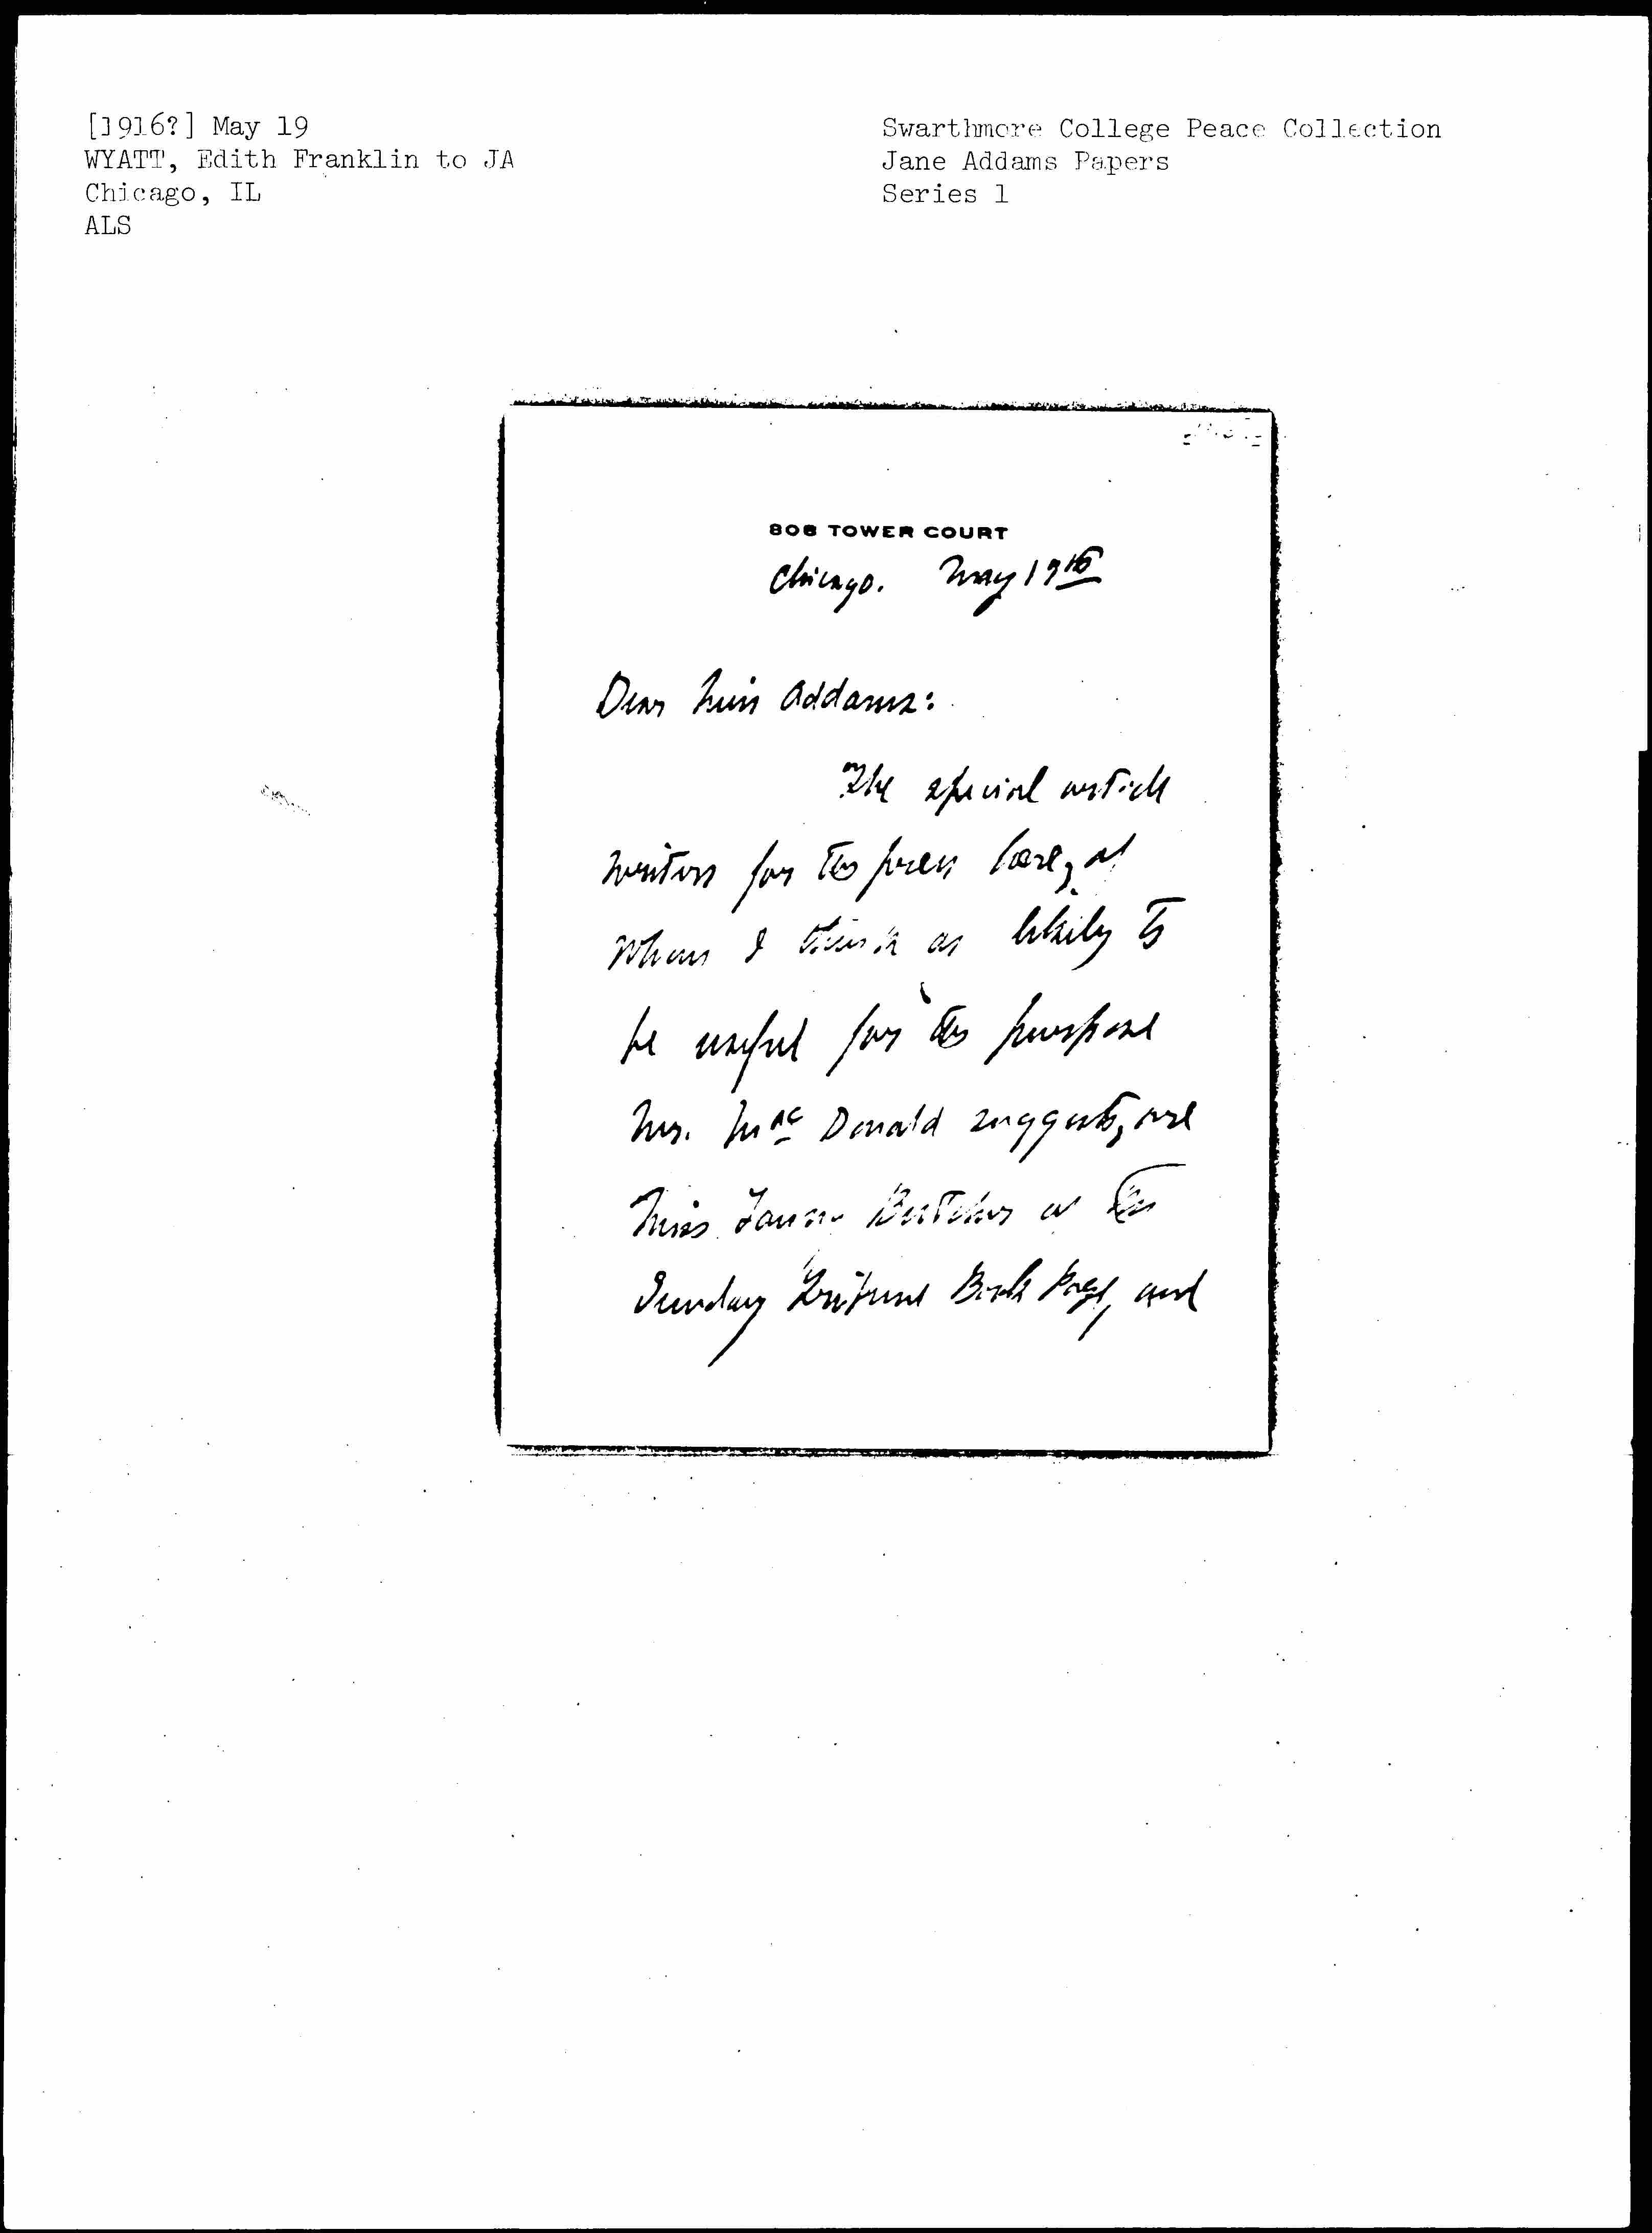 [1916?] May 19
WYATT, Edith Franklin to JA
Chicago, IL
ALS
Swarthmore College Peace Collection
Jane Addams Papers
Series 1
808 TOWER COURT
Chicago. May 19th
Dear Miss Addams:
The special article
writers for the press here, of
whom I think as likely to
be useful for the purpose
Mr. MacDonald suggests, are
Miss Fanny Butcher of the
Sunday Tribune Book Page, and